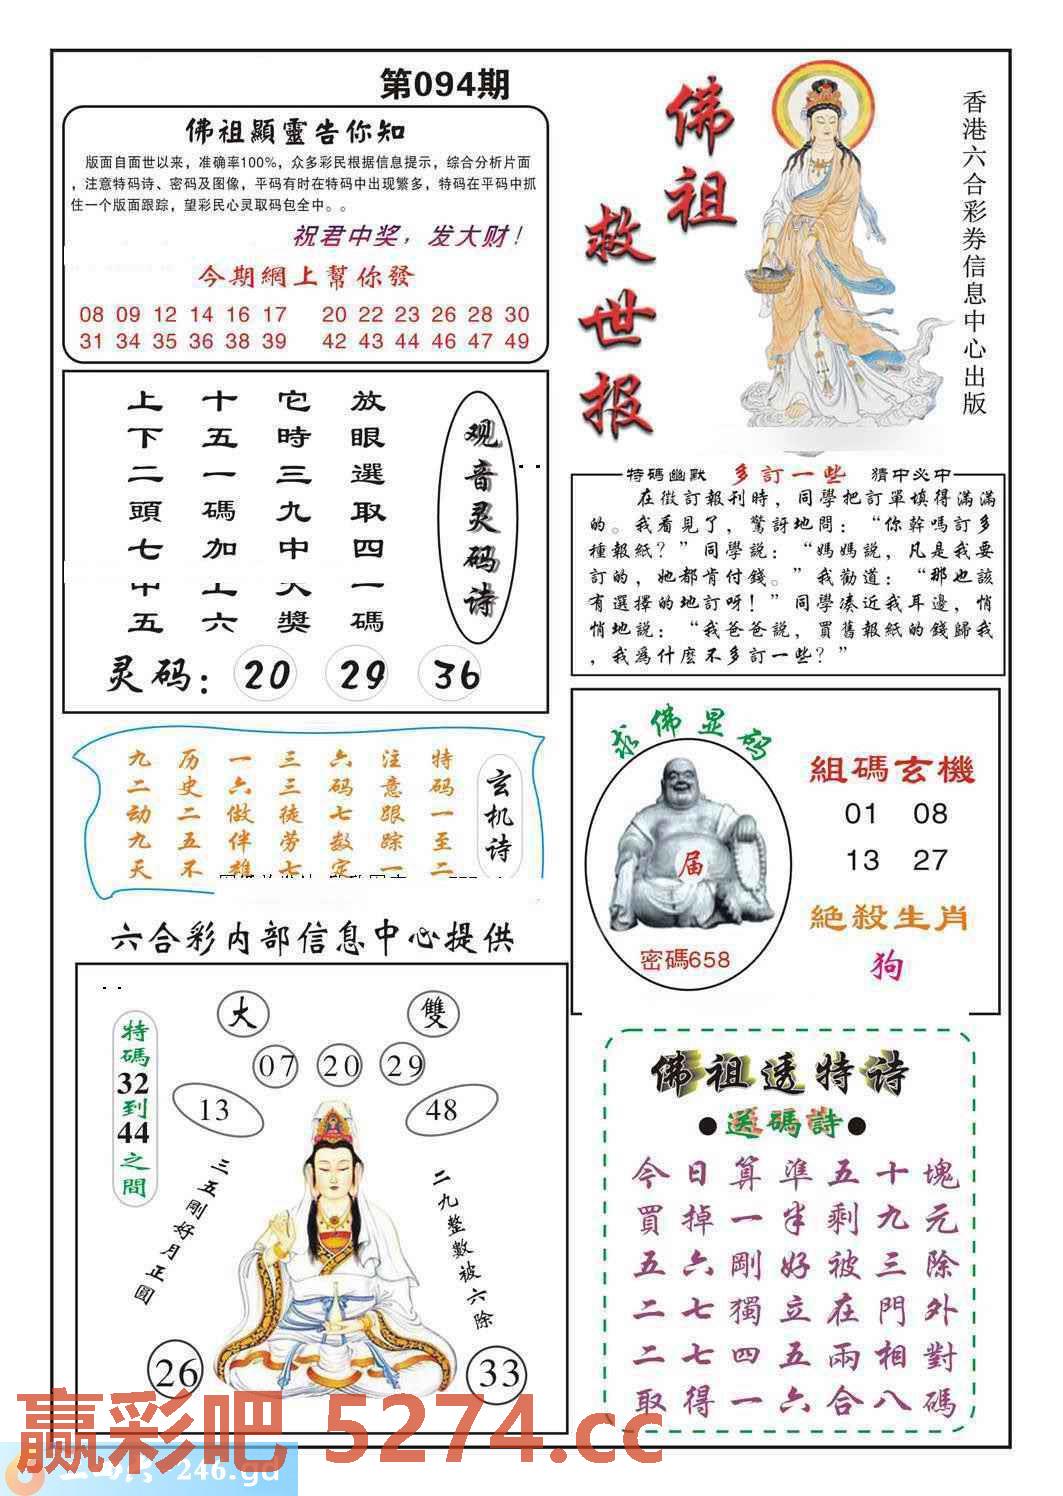 第094期
佛祖顯靈告你知
版面自面世以来，准确率100%，众多彩民根据信息提示，综合分析片面
，注意特码诗、密码及图像，平码有时在特码中出现繁多，特码在平码中抓
住一个版面跟踪，望彩民心灵取码包全中。。
祝君中奖，发大财！
今期網上幫你發
08 09 12 14 16 17 20 22 23 26 28 30
31 34 35 36 38 39 42 43 44 46 47 49
佛祖
救世报
香港六合彩券信息中心出版
观音灵码诗
放眼選取四一碼
它時三九中大獎
十五一碼加上六
上下二頭七中五
灵码：20 29 36
特碼幽默 多訂一些 猜中必中
在徵訂報刊時，同學把訂單填得滿滿
的。我看見了，驚訝地問：“你幹嗎訂多
種報紙？”同學説：“媽媽説，凡是我要
訂的，她都肯付錢。”我勸道：“那也該
有選擇的地訂呀！”同學凑近我耳邊，悄
悄地説：“我爸爸説，買舊報紙的錢歸我
，我爲什麼不多訂一些？”
玄机诗
特码一至二
注意跟踪一
六码七数定
三三徒劳七
一六做伴雄
历史二五不
九二动九天
求佛显码
届
密碼658
組碼玄機
01 08
13 27
絶殺生肖
狗
六合彩内部信息中心提供
大 雙
07 20 29
13 48
特碼32到44之間
三五剛好月正圓
二九整數被六除
26 33
佛祖透特诗
●送碼詩●
今日算準五十塊
買掉一半剩九元
五六剛好被三除
二七獨立在門外
二七四五兩相對
取得一六合八碼
赢彩吧 5274.cc
246.gd